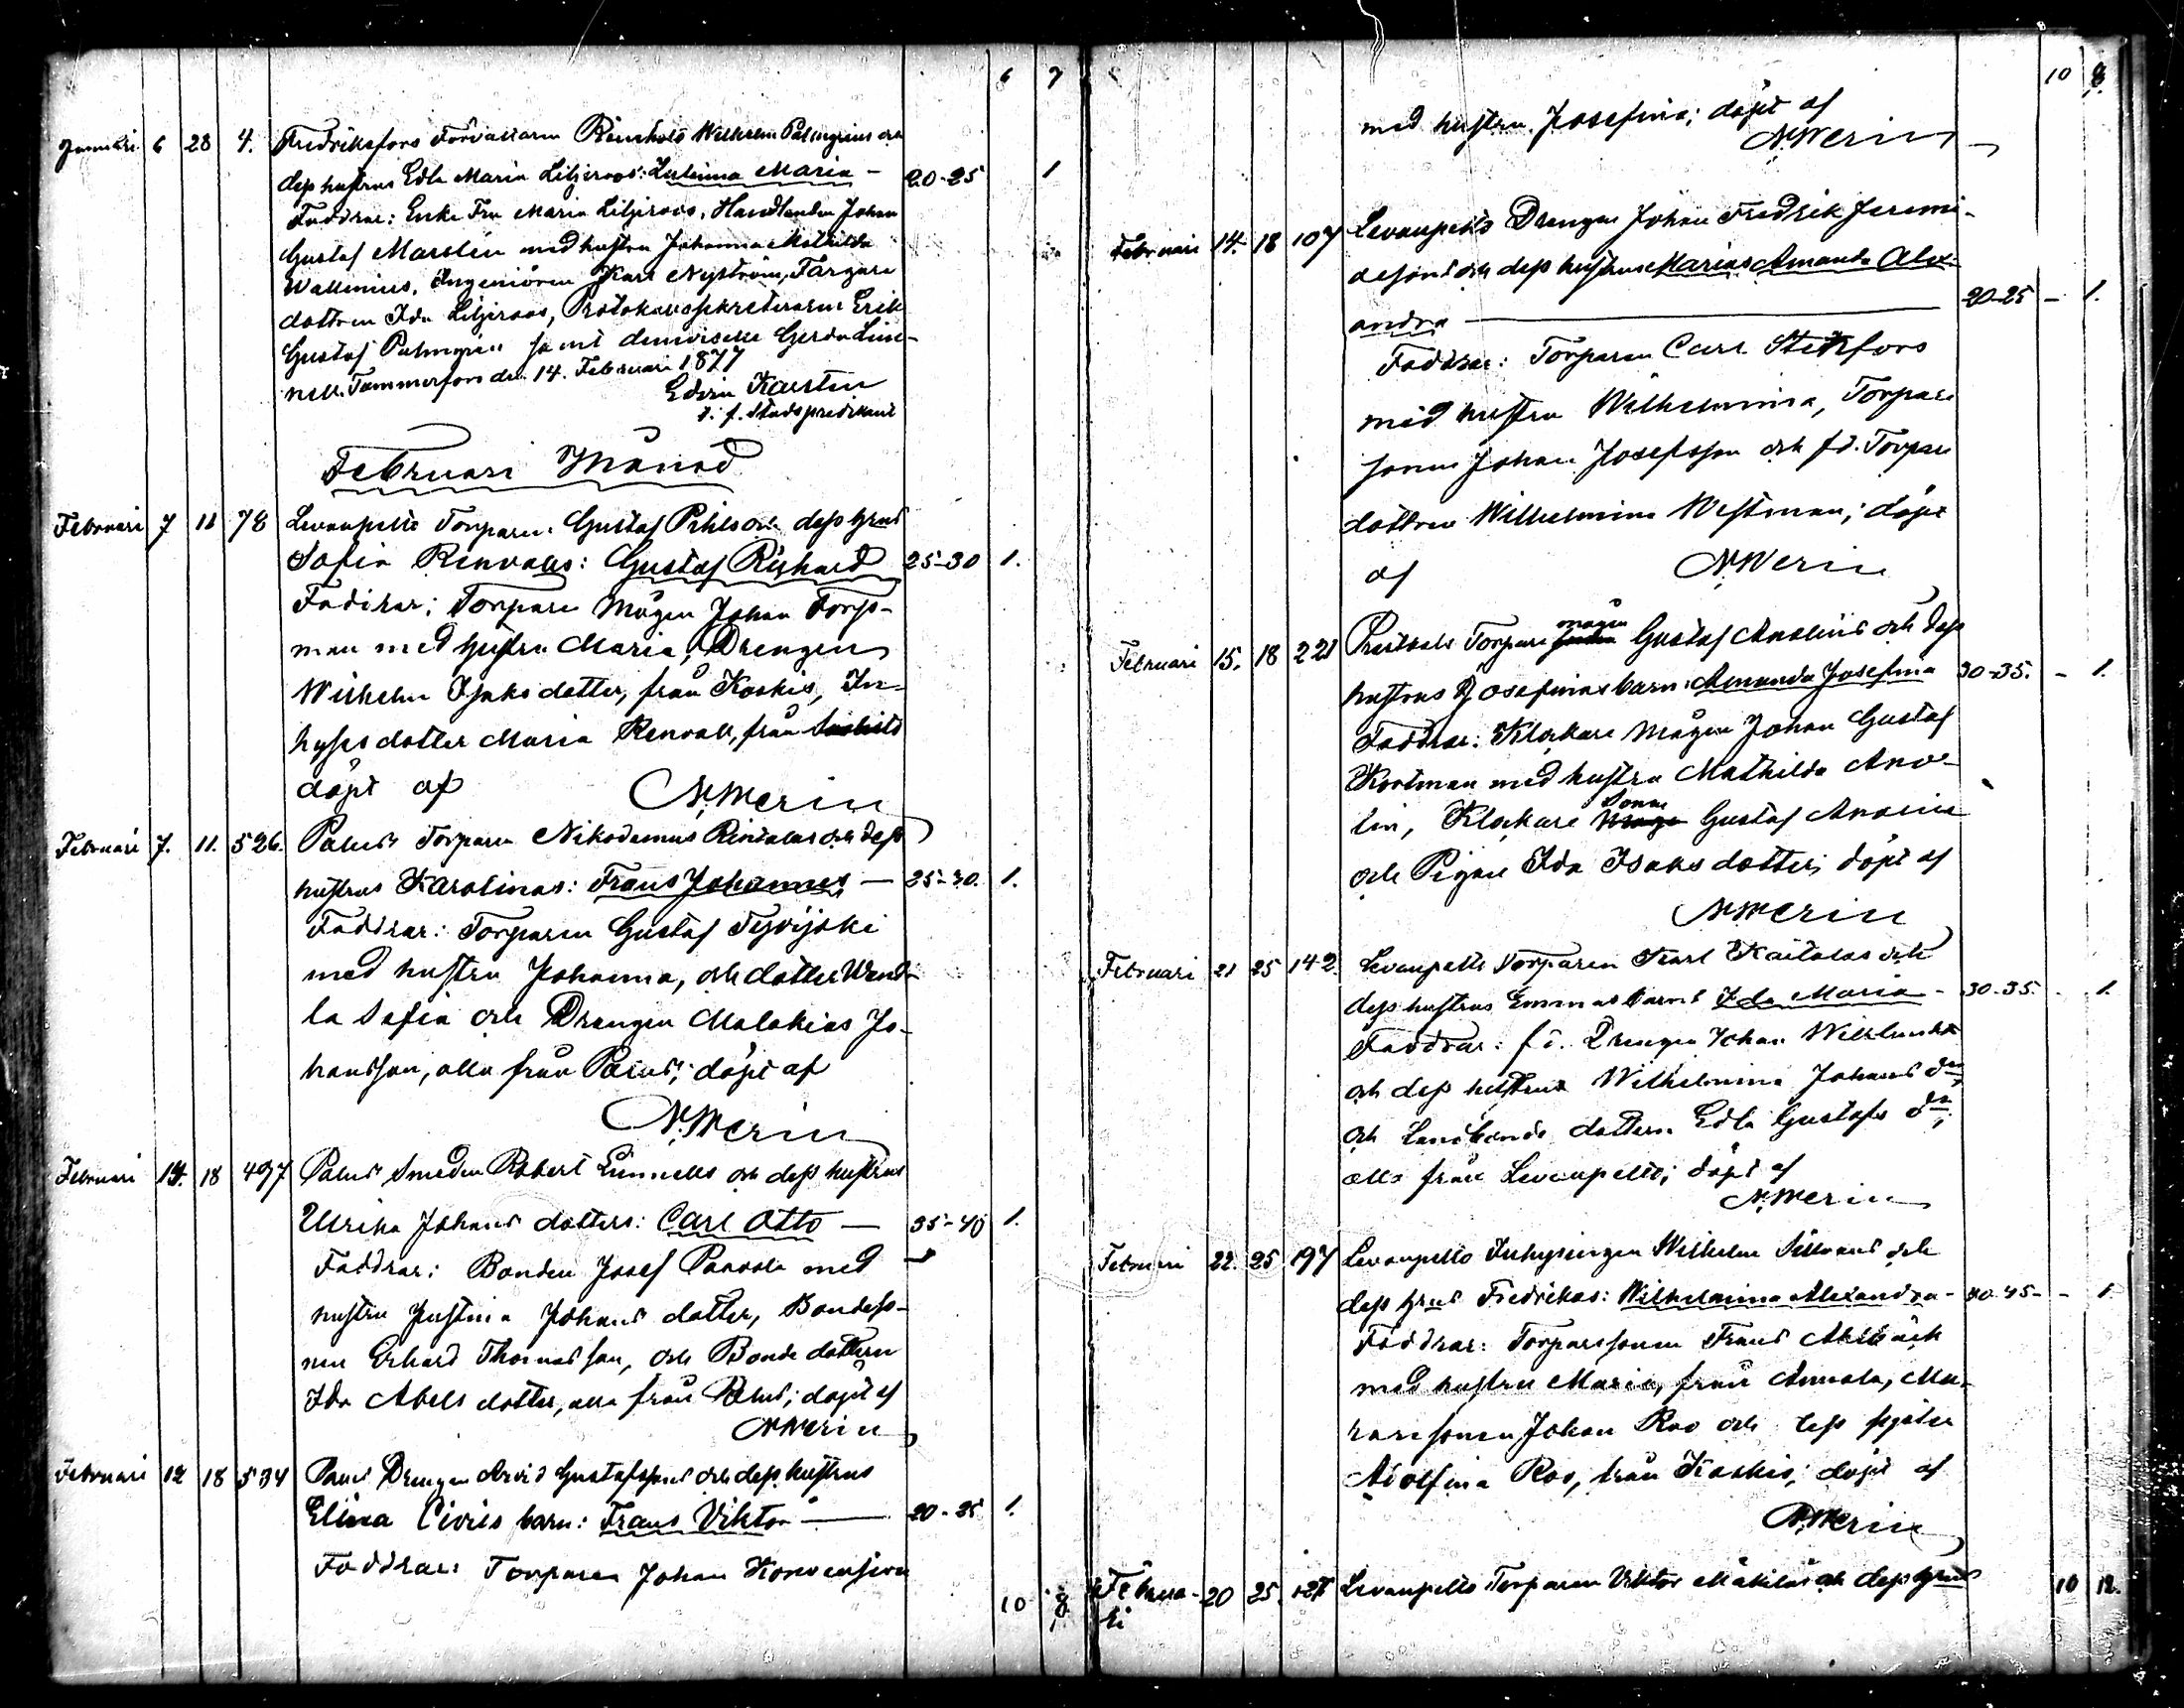 6 7
Januari 6 28 4. Fredriksfors Förvaltaren Reinhold Wilhelm Palmgrens och
dess hustrus Edla Maria Liljeroos: Maria — 20-25 1
Faddrar: Enke Fru Maria Liljeroos, Handlanden Johan
Gustaf Marelén med hustru Johanna Mathilda
Wallenius, Ingeniören Karl Nyström, Färgare
dottren Ida Liljeroos, Protokollssekreteraren Erik
Gustaf Palmgren samt demoiselle Gerda
Tammerfors den 14. Februari 1877
Edvin Karsten
t. f. Stadspredikant
Februari Månad
Februari 7 11 78 Levanpelto Torparen Gustaf Pihls och dess hus
Sofia Renvalls: Gustaf Richard 25-30 1.
Faddrar; Torpare Mågen Johan Torp-
man med hustru Maria, Drengen
Wilhelm Isaks dotter, från Koskis, In-
hyses dotter Maria Renvall, från
döpt af N. Merin
Februari 7. 11. 526. Palus Torparen Nikodemus Rintalas och dess
hustrus Karolinas: Frans Johannes — 25-30. 1.
Faddrar: Torparen Gustaf Tyvijoki
med hustru Johanna, och dotter Wend-
la Sofia och Drengen Malakias Jo-
hansson, alla från Palus; döpt af
N. Merin
Februari 14. 18 497 Palus Smeden Robert Linnells och dess hustrus
Ulrika Johans dotters: Carl Otto — 35-40 1.
Faddrar: Bonden Josef Panvola med
hustru Justina Johans dotter, Bondeso-
nen Erhard Thomasson, och Bonde dottern
Ida Abels dotter, alla från Palus; döpt af
N. Merin
Februari 12 18 534 Palus Drengen Arvid Gustafssons och dess hustrus
Elina Civils barn: Frans Viktor — 20-25 1.
Faddrar: Torparen Johan
10 8
10 8
med hustru Josefina; döpt af
N. Merin
Februari 14. 18 107 Levanpelto Drengen Johan Fredrik Jeremi-
assons och dess hustrus Marias Amanda Alex-
andra — 20-25 — 1.
Faddrar: Torparen Carl Stenfors
med hustru Wilhelmina, Torpare
sonen Johan Josefsson och fd. Torpare
dottren Wilhelmina Westman; döpt
af N. Merin
Februari 15. 18 221 Torpare mågen Gustaf Anolins och dess
hustrus Josefinas barn: Amanda Josefina 30-35. - 1.
Faddrar: Klockare Mågen Johan Gustaf
Kortman med hustru Mathilda Ano-
lin, Klockare Sonen Gustaf Anolin
och Pigan Ida Isaks dotter; döpt af
N. Merin
Februari 21 25 142. Levanpelto Torparen Karl Kaitalas och
dess hustrus Emmas barn: Ida Maria - 30-35. - 1.
Faddrar: fd. Drengen Johan
och dess hustru Wilhelmina Johans dr
och Landbonde dottern Edla Gustafs dr,
alla från Levanpelto; döpt af
N. Merin
Februari 22. 25 197 Levanpelto Inhysingen Wilhelm och
dess hus Fredrikas: Wilhelmina Alexandra - 40-45- - 1
Faddrar: Torparssonen Frans Ahlbäck
med hustru Maria, från Annala, Mu-
raresonen Johan Roo och dess syster
Adolfina Roo, från Koskis; döpt af
N. Merin
Februa-
ri 20 25. 127 Levanpelto Torparen Viktor Mäkiläs och dess hus
10 12.